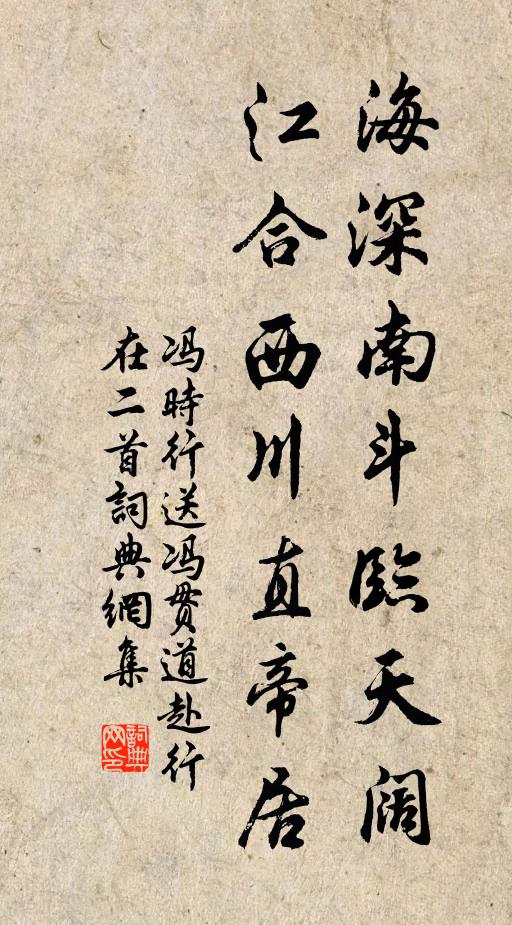 海深南斗臨天阔
江合西川直帝居
冯時行送冯贯道赴行
在二首詞典網集
詞典
网印